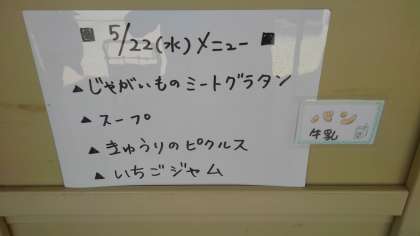 5/22(水)メニュー
▲じゃがいものミートグラタン
▲スープ
▲きゅうりのピクルス
▲いちごジャム
パン
牛乳